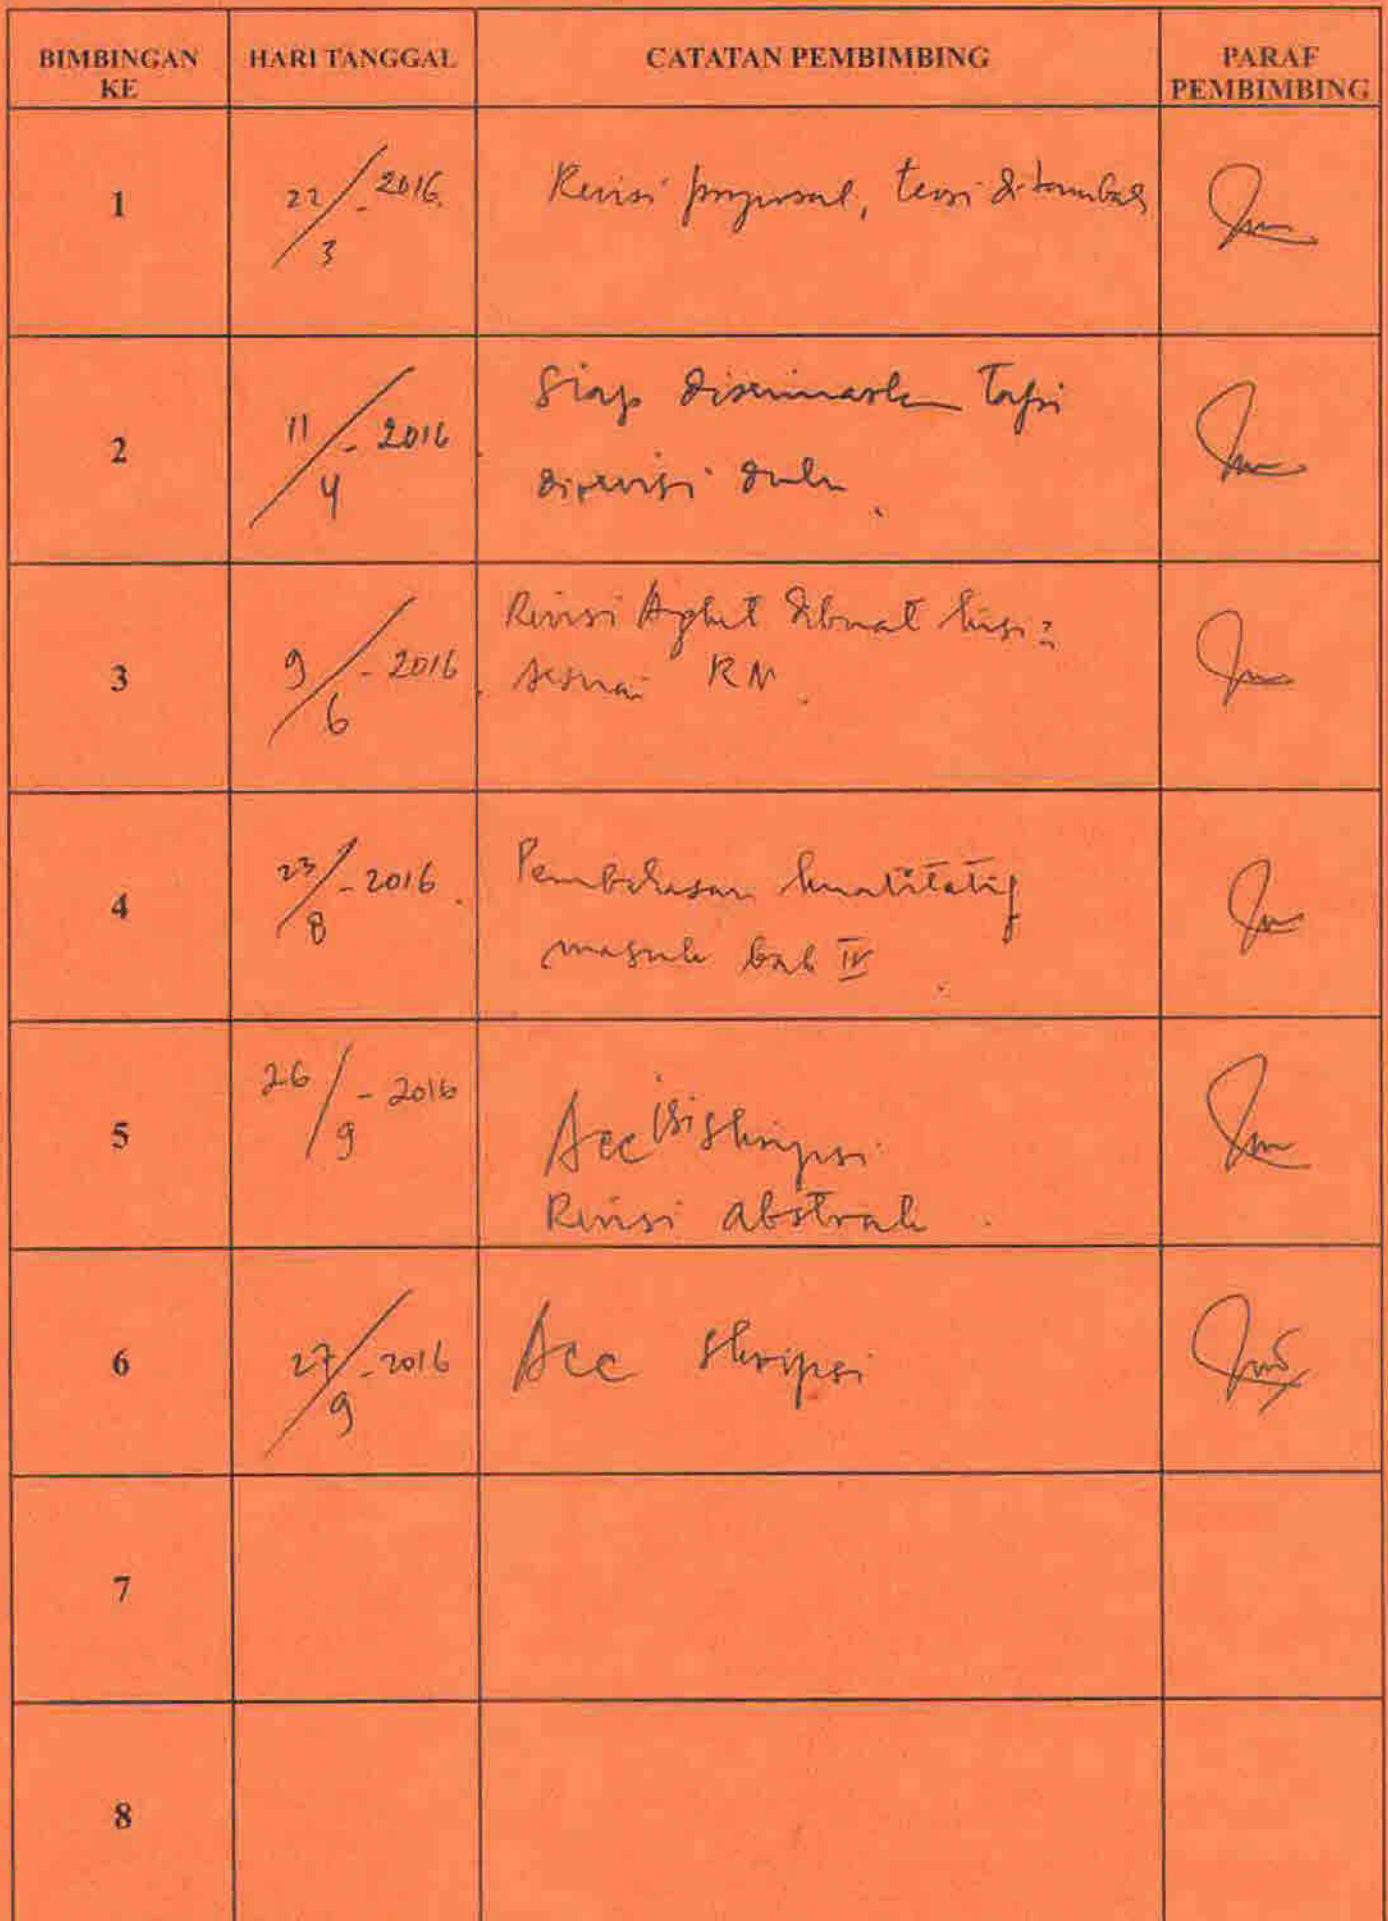 BIMBINGAN KE HARI TANGGAL CATATAN PEMBIMBING PARAF PEMBIMBING
1 22/3 - 2016 Revisi proposal, teori ditambah
2 11/4 - 2016 Siap diseminarkan tapi
direvisi dulu.
3 9/6 - 2016 Revisi dibuat
sesuai RM.
4 23/8 - 2016. Pembahasan kuatitatif
masuk bab IV.
5 26/9 - 2016 Acc isi skripsi
Revisi abstrak.
6 27/9 - 2016 Acc skripsi
7
8